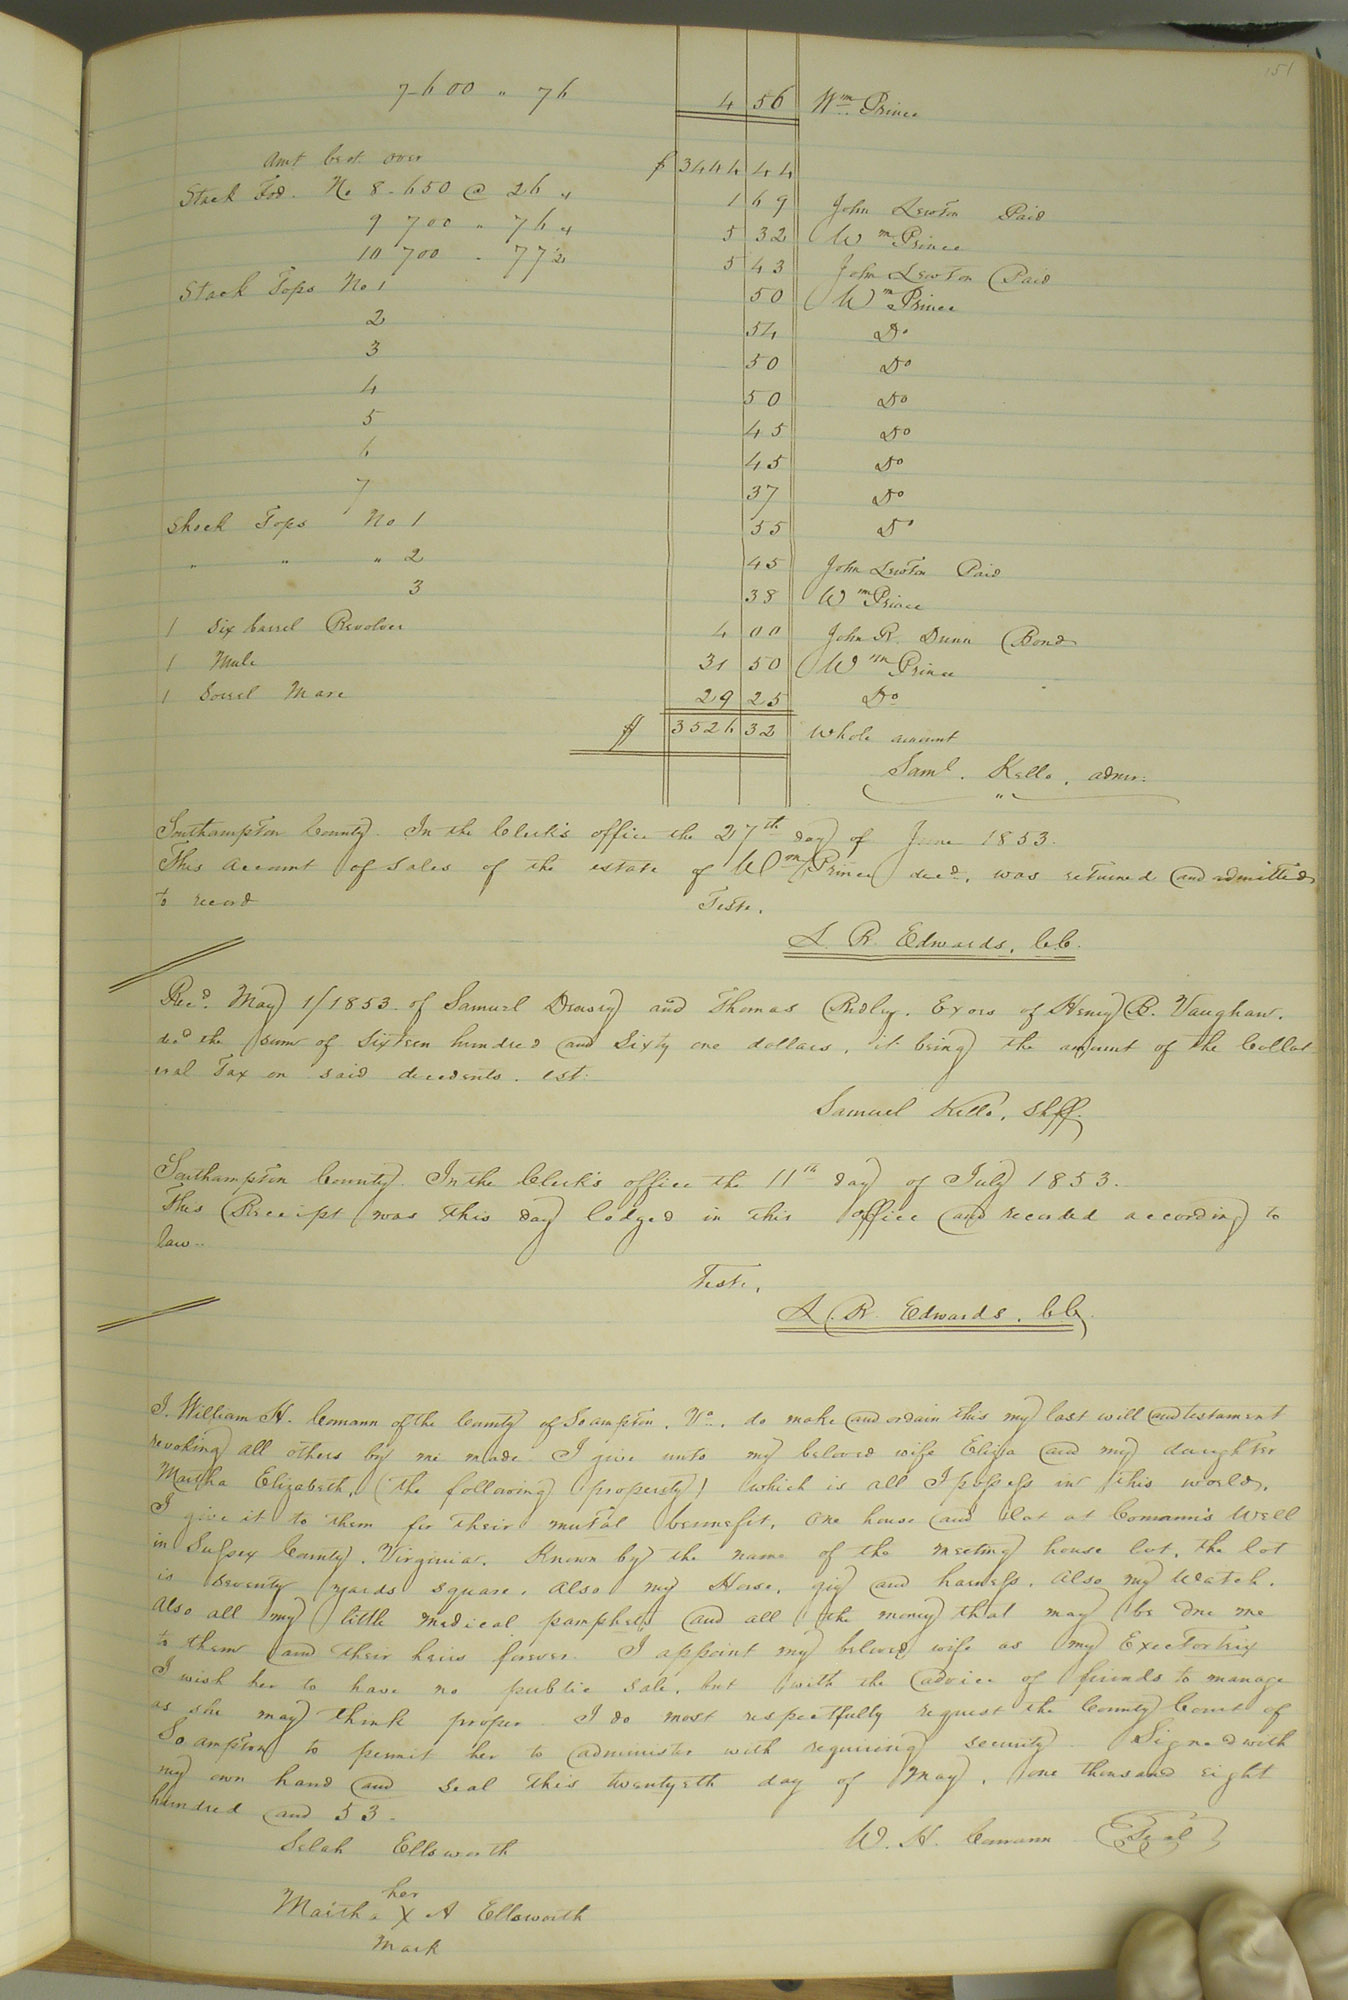 151
7-600 " 76 4 56 Wm Prince
Amt brot over $3444 44
Stack Fod. No 8-650 @ 26 " 1 69 John Lewton Paid
9 700 " 76 " 5 32 Wm Prince
10 700 " 77½ 5 43 John Lewton Paid
Stack Tops No 1 50 Wm Prince
2 54 Do
3 50 Do
4 50 Do
5 45 Do
6 45 Do
7 37 Do
Shock Tops No 1 55 Do
" " " 2 45 John Lewton Paid
3 38 Wm Prince
1 Six barrel Revolver 4 00 John R. Dunn Bond
1 Mule 31 50 Wm Prince
1 Sorrel Mare 29 25 Do
$ 3526 32 Whole amount
Saml. Kello, admr.
Southampton County. In the Clerk's office the 27th day of June 1853.
This account of sales of the estate of Wm Prince decd. was returned and admitted
to record Teste.
L. R. Edwards, C.C.
Recd. May 1/1853 of Samuel Drewry and Thomas Ridley, Exors of Henry B. Vaughan,
decd the sum of Sixteen hundred and Sixty one dollars, it being the amount of the Collat
eral Tax on said decedents. est.
Samuel Kello, Shff.
Southampton County. In the Clerk's office the 11th day of July 1853.
This Receipt was this day lodged in this office and recorded according to
law..
Teste,
L. R. Edwards, C.C.
I, William H. Comann of the County of Soampton, Va., do make and ordain this my last will and testament
revoking all others by me made. I give unto my beloved wife Eliza and my daughter
Martha Elizabeth, (the following property) which is all I possess in this world,
I give it to them for their mutal bennefit, one house and lot at Comann's Well
in Sussex County, Virginia. Known by the name of the meeting house lot, the lot
is seventy yards square, also my Horse, gig and harness, also my Watch,
also all my little medical pamphets and all the money that may be due me
to them and their heirs forever. I appoint my beloved wife as my Exectortrix
I wish her to have no public sale, but with the advice of friends to manage
as she may think proper. I do most respectfully request the County Court of
Soampton to permit her to administer with requiring security. Signed with
my own hand and seal this twentyeth day of May, one thousand eight
hundred and 53.
Selah Ellsworth W. H. Comann Seal
her
Martha X A Ellsworth
mark